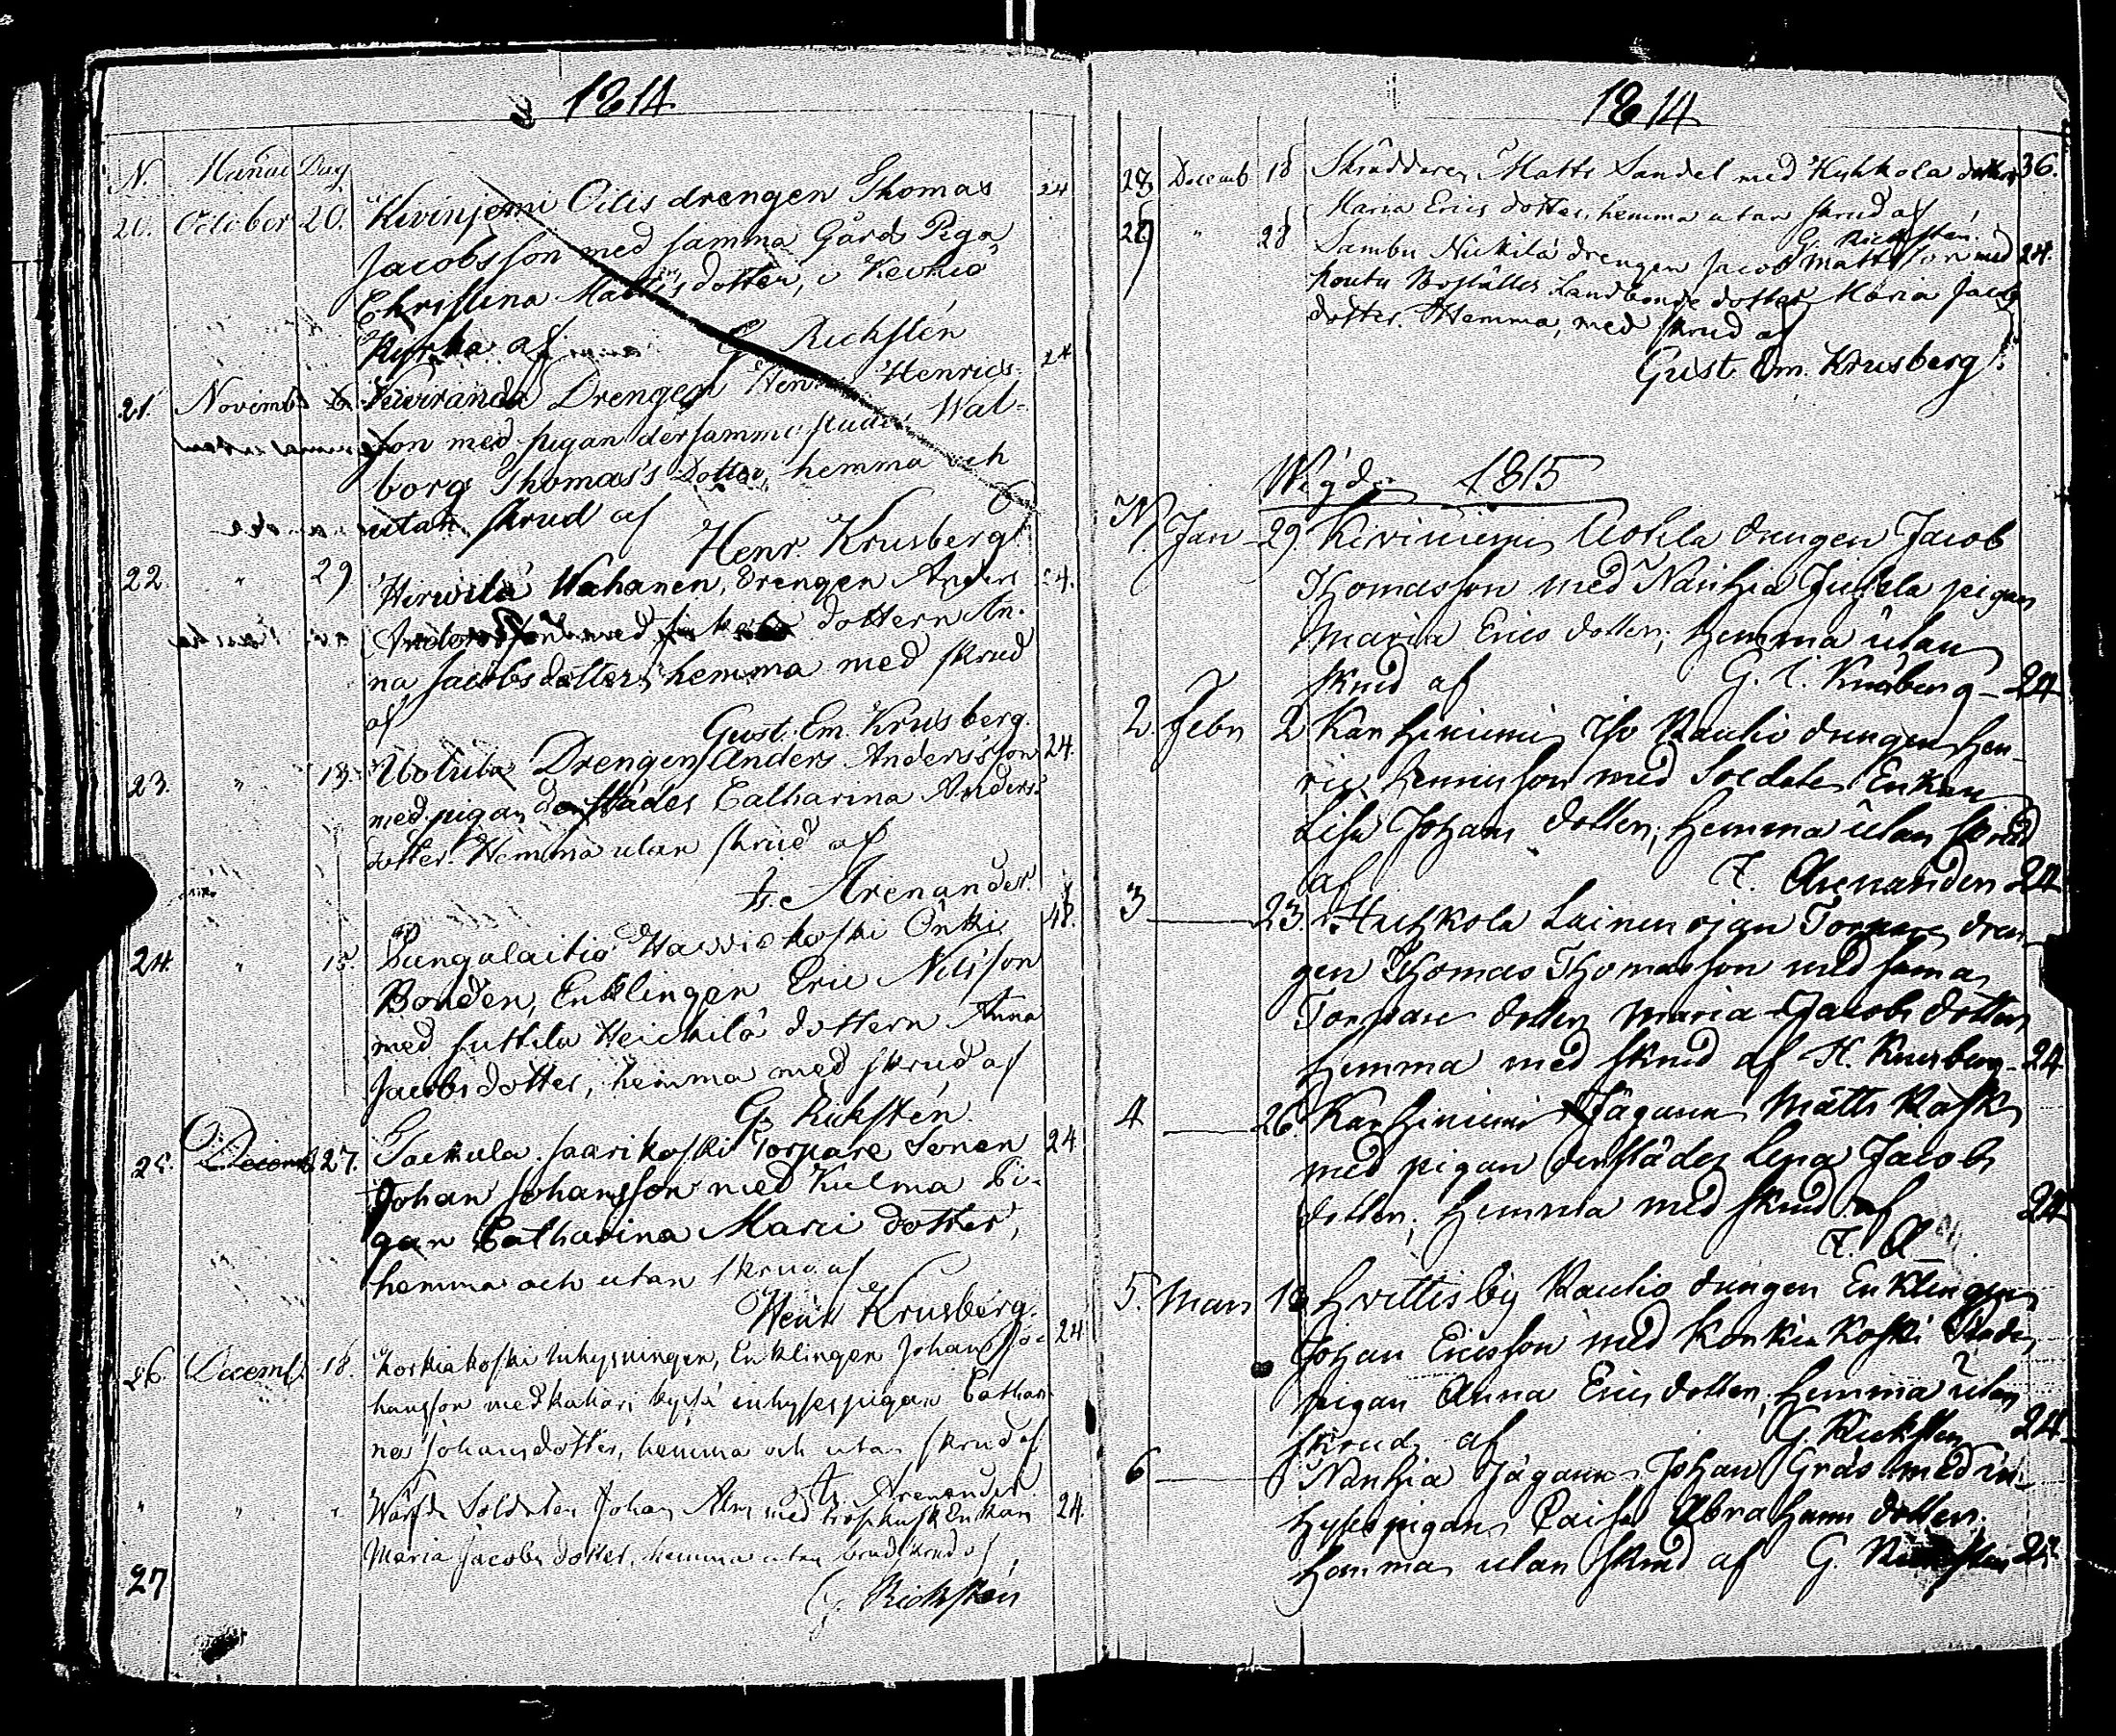 1814
N. Månad Dag
20. October 20. Kivinjemi Oilis drengen Thomas 24
Jacobsson med samma Gård Piga
Christina Mattsdotter, i
Kyrka af G. Rickstén
21. Novemb 6. Drengen Henr. Henrics- 24
son med pigan dersammastädes Wal-
borg Thomas's Dotter, hemma och
utan skrud af
Henr. Krusberg
22. " 29 Hirvilä Wahanen, drengen Anders 24.
Andersson med dottern An-
na Jacobsdotter, hemma med skrud
af Gust. Em. Krusberg.
23. " 13. Uotula Drengen Anders Andersson 24.
med pigan derstädes Catharina Anders-
dotter. Hemma utan skrud af
Fr. Arenander
24. " 15. Pungalaitio Haviokoski Onkis 48.
Bonden, Enklingen Eric Nilsson
med Suttila Heickilä dottern Anna
Jacobsdotter, hemma med skrud af
G. Rickstén
25. Decemb 27. Sackula Saarikoski Torpare Sonen 24
Johan Johansson med Kulma Pi-
gan Catharina Marci dotter,
hemma och utan skrud af
Henr Krusberg.
26. Decemb. 18. Korkiakoski Inhysningen, Enklingen Johan Jo- 24
hansson med inhysespigan Cathari-
na Johansdotter, hemma och utan skrud af
Fr. Arenander
" " " Soldaten Johan Alm med Enkan 24.
Maria Jacobsdotter, hemma utan brudskrud af
27 G. Rickstén
1814
28 Decemb 18 Skräddaren Matts Sandel med Huhkola dotter 36.
Maria Erics dotter, hemma utan skrud af
G. Rickstén.
29 " 28 Sambu Nickilä drengen Jacob Mattsson med 24.
Boställes Landbonde dotter Maria Jacobs
dotter. Hemma, med skrud af
Gust. Em. Krusberg.
Wigde 1815
N.
1. Jan 29. Kiviniemi Uotila drengen Jacob
Thomasson med Nanhia Jussila pigan
Maria Erics dotter, hemma utan
skrud af G. E. Krusberg - 24
2. Febr 2 Karhiniemi Iso Raulio drengen Hen-
ric Henricsson med Soldats Enkan
Lisa Johans dotter, hemma utan skrud
af F. Arenander 24
3 23. Huhkola Lainen ojan Torpare dren-
gen Thomas Thomasson med sama
Torpare dotter Maria Jacobs dotter
hemma med skrud af H. Krusberg - 24
4 26. Karhiniemi Jägaren Matts Rask
med pigan derstädes Lena Jacobs
dotter, hemma med skrud af 24
F. A
5. Mars 18 Hvittisby Raulio drengen Enklingen
Johan Ericsson med Korkiakoski
pigan Anna Erics dotter, hemma utan
skrud af G. Rickstén 24
6 Nanhia Jägaren Johan Gräs med in-
hyses pigan Caisa Abrahams dotter.
hemma utan skrud af G. Rickstén 24